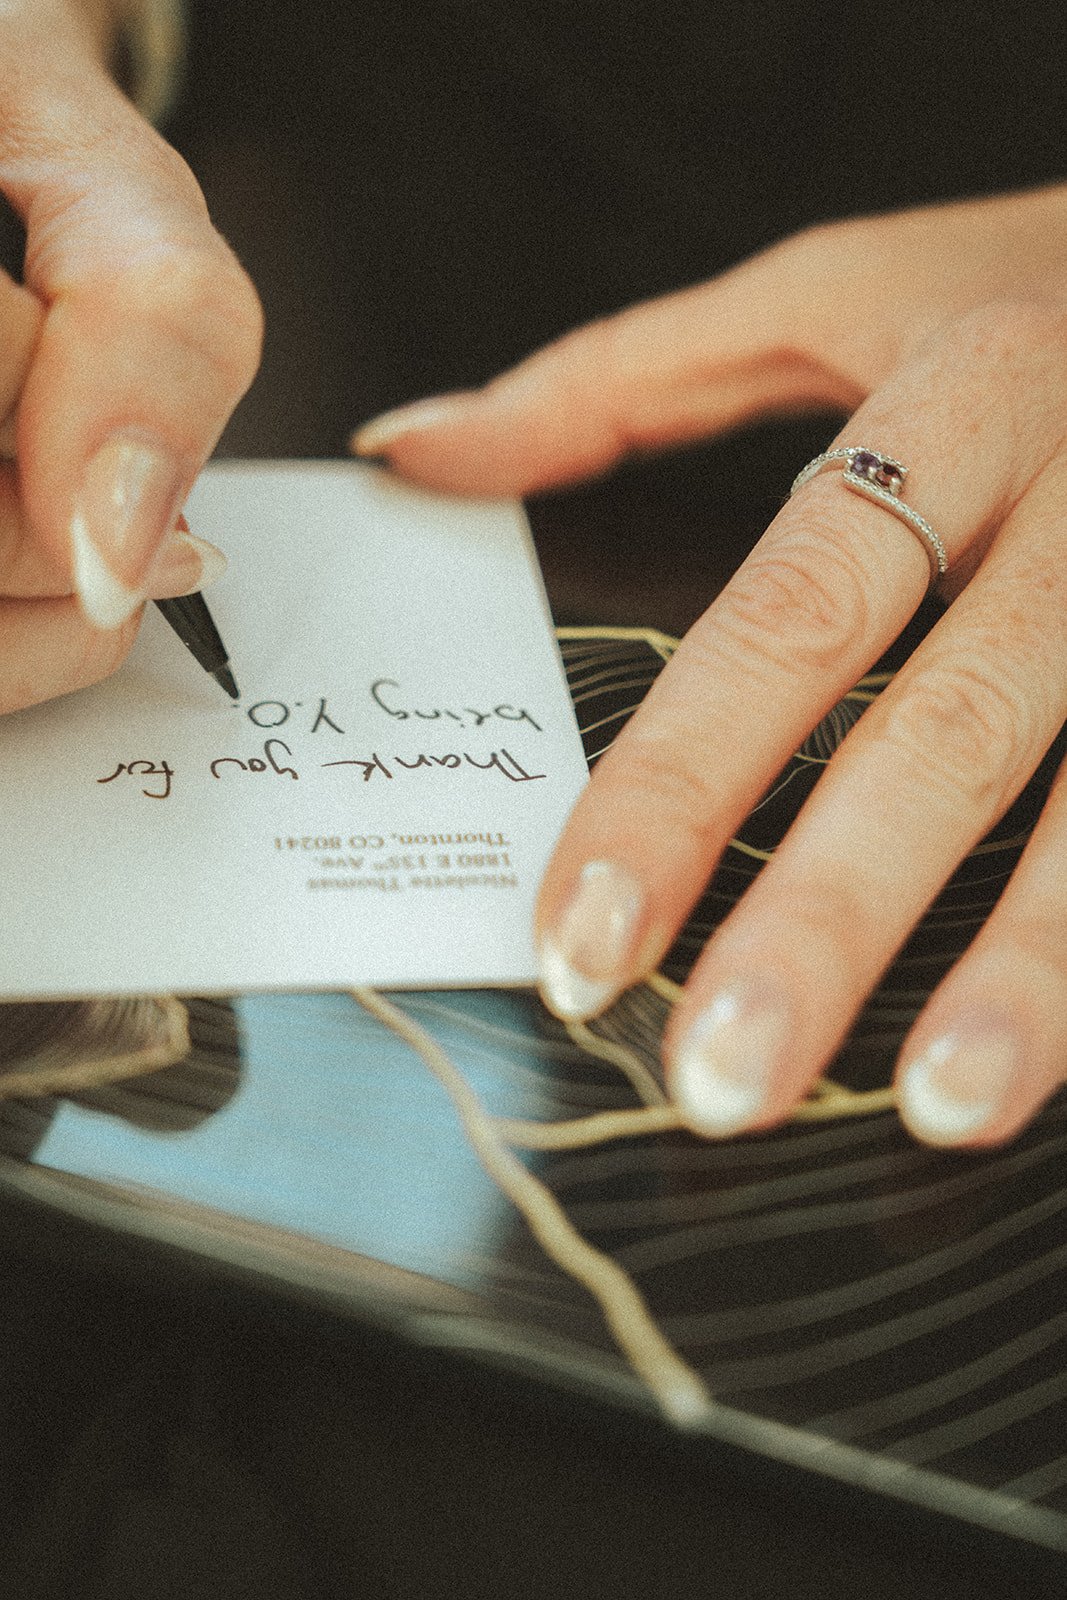 Nicolette Thomas
1880 E 135th Ave.
Thornton, CO 80241
Thank you for
being Y.O.